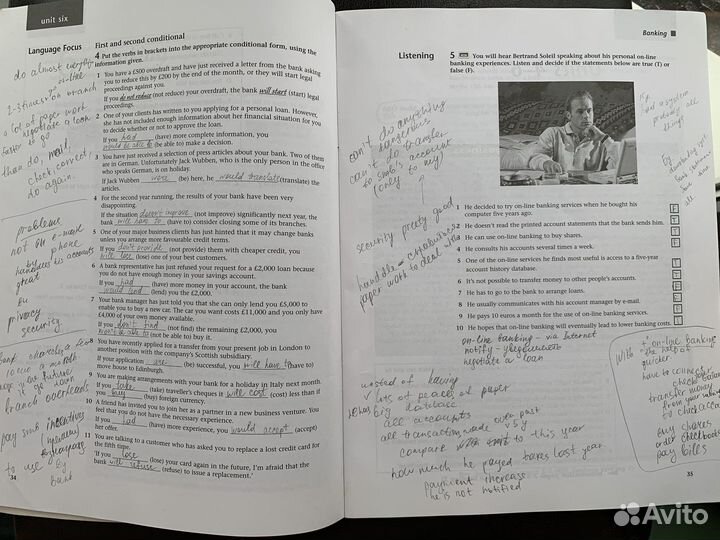 unit six
Language Focus
First and second conditional
4 Put the verbs in brackets into the appropriate conditional form, using the
information below.
1 You have a £500 overdraft and have just received a letter from the bank asking
you to reduce this by £200 by the end of the month, or they will start legal
proceedings against you.
If you do not reduce (not reduce) your overdraft, the bank will start (start) legal
proceedings.
2 One of your clients has written to you applying for a personal loan. However,
she has not included enough information about her financial situation for you
to decide whether or not to approve the loan.
If you had (have) more complete information, you
would be able to (be able to) make a decision.
3 You have just received a selection of press articles about your bank. Two of them
are in German. Unfortunately Jack Wubben, who is the only person in the office
who speaks German, is on holiday.
If Jack Wubben were (be) here, he would translate (translate) the
articles.
4 For the second year running, the results of your bank have been very
disappointing.
If the situation doesn't improve (not improve) significantly next year, the
bank will have to (have to) consider closing some of its branches.
5 One of your major business clients has just hinted that it may change banks
unless you arrange more favourable credit terms.
If you don't provide (not provide) them with cheaper credit, you
will lose (lose) one of your best customers.
6 A bank representative has just refused your request for a £2,000 loan because
you do not have enough money in your savings account.
If you had (have) more money in your account, the bank
would lend (lend) you the £2,000.
7 Your bank manager has just told you that she can only lend you £5,000 to
enable you to buy a new car. The car you want costs £11,000 and you only have
£4,000 of your own money available.
If you don't find (not find) the remaining £2,000, you
won't be able to (not be able to) buy it.
8 You have recently applied for a transfer from your present job in London to
another position with the company's Scottish subsidiary.
If your application are (be) successful, you will have to (have to)
move house to Edinburgh.
9 You are making arrangements with your bank for a holiday in Italy next month.
If you take (take) traveller's cheques it will cost (cost) less than if
you buy (buy) foreign currency.
10 A friend has invited you to join her as a partner in a new business venture. You
feel that you do not have the necessary experience.
If you had (have) more experience, you would accept (accept)
her offer.
11 You are talking to a customer who has asked you to replace a lost credit card for
the fifth time.
'If you lose (lose) your card again in the future, I'm afraid that the
bank will refuse (refuse) to issue a replacement.'
34
do almost everything
on-line
2-3 times on branch
a lot of paper work
negotiate a loan
faster to go
than do, mail,
check correct,
do again.
problems
not on e-mail
by phone
great
privacy
security
branch overheads
pay some incentives
to use
by
bank
Banking
Listening
5 You will hear Bertrand Soleil speaking about his personal on-line
banking experiences. Listen and decide if the statements below are true (T) or
false (F).
can't do anything
dangerous
can't do transfer
to smb's account
(only to my)
security pretty good
paper work to deal
1 He decided to try on-line banking services when he bought his
computer five years ago.
2 He doesn't read the printed account statements that the bank sends him.
3 He can use on-line banking to buy shares.
4 He consults his accounts several times a week.
5 One of the on-line services he finds most useful is access to a five-year
account history database.
6 It's not possible to transfer money to other people's accounts.
7 He has to go to the bank to arrange loans.
8 He usually communicates with his account manager by e-mail.
9 He pays 10 euros a month for the use of on-line banking services.
10 He hopes that on-line banking will eventually lead to lower banking costs.
on-line banking - via Internet
notify - уведомлять
negotiate a loan
instead of having
lots of peaces of paper
has big database
all accounts
all transaction made over past
5 y
compare to this year
how much he payed taxes last year
payment increase
he is not notified
on-line banking
with the help of
quicker
have to connect
check balance
transfer money
from your saving
to checkaccount
pay shares
order checkbooks
pay bills
35
Avito